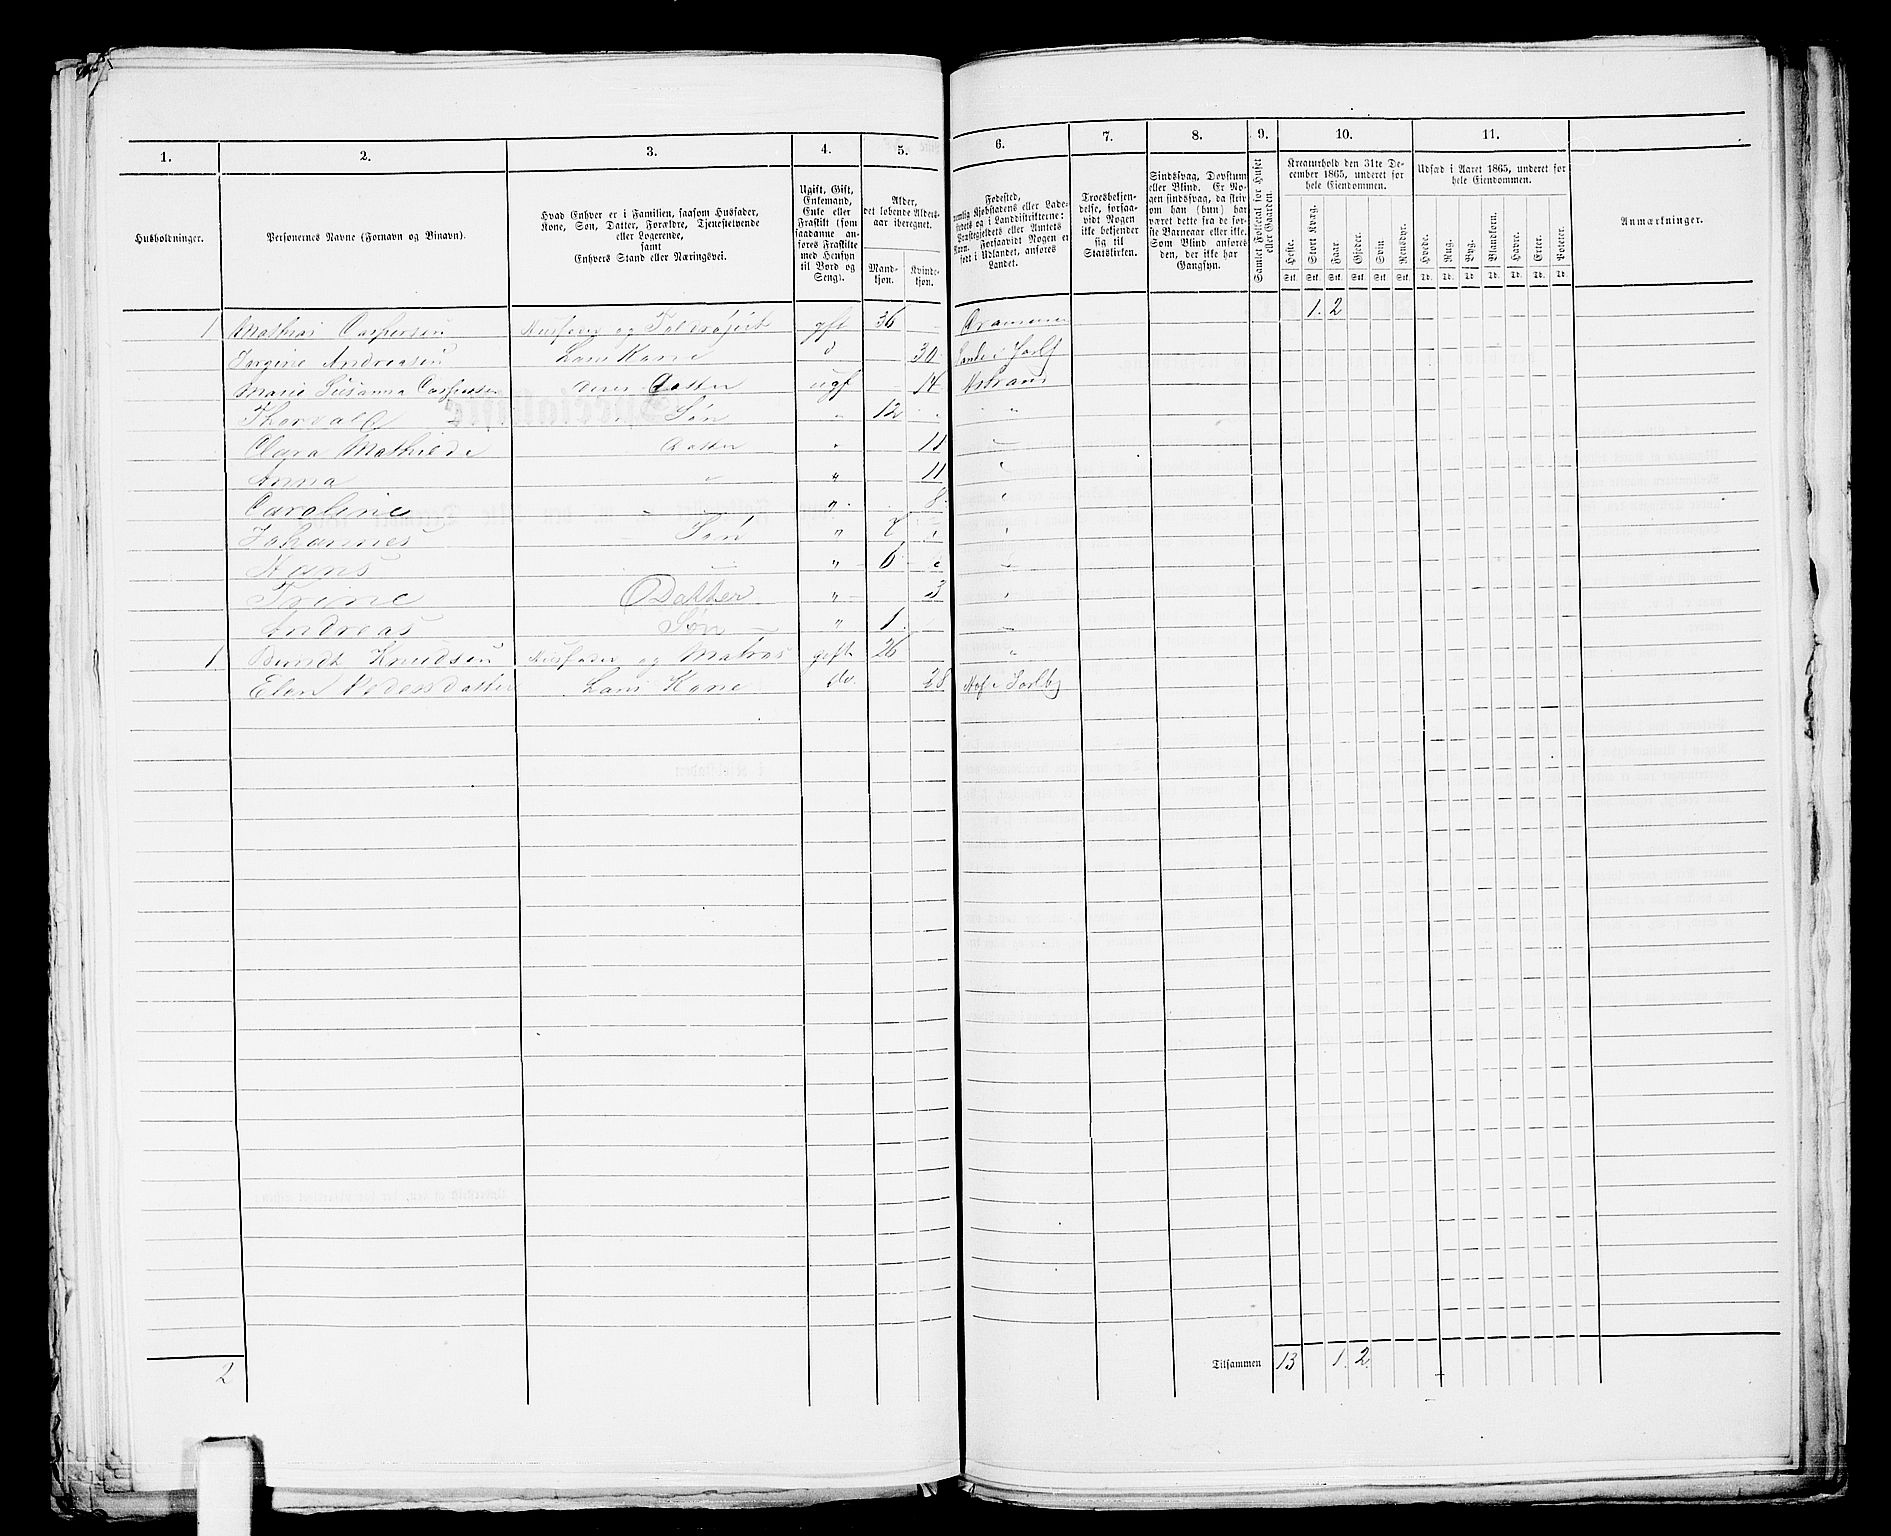 1. 2. 3. 4. 5. 6. 7. 8. 9. 10. 11.
Husholdninger.
Personernes Navne (Fornavn og Binavn).
Hvad Enhver er i Familien, saasom Husfader,
Kone, Søn, Datter, Forældre, Tjenestetyende
eller Logerende,
samt
Enhvers Stand eller Næringsvei.
Ugift, Gift,
Enkemand,
Enke eller
Fraskilt (som
saadanne an-
føres Fraskilte
med Hensyn
til Bord og
Seng).
Alder,
det løbende Alders-
aar iberegnet.
Mand-
kjøn.
Kvinde-
kjøn.
Fødested,
nemlig Kjøbstadens eller Lade-
stedets og i Landdistrikterne:
Præstegjeldets eller Amtets
Navn. Forsaavidt Nogen er
født i Udlandet, anføres
Landet.
Troesbekjen-
delse, forsaa-
vidt Nogen
ikke bekjender
sig til
Statskirken.
Sindssvag, Døvstum
eller Blind. Er No-
gen sindssvag, da skriv
om han (hun) har
været dette fra de før-
ste Barneaar eller ikke.
Som Blind anføres
den, der ikke har
Gangsyn.
Samlet Folketal for Huset
eller Gaarden.
Kreaturhold den 31te De-
cember 1865, underet for
hele Eiendommen.
Heste. Stort Kvæg. Faar. Gjeder. Svin. Rensdyr.
Stk. Stk. Stk. Stk. Stk. Stk.
Udsæd i Aaret 1865, underet for
hele Eiendommen.
Hvede. Rug. Byg. Blandkorn. Havre. Erter. Poteter.
Td. Td. Td. Td. Td. Td. Td.
Anmærkninger.
1 Mathias Caspersen Husfader og Toldrogert gift 36 Dramen 1. 2
Jørgine Andreasen Hans Kone d 30 Sande i Jarlsb
Marie Susanna Caspersen deres Datter ugf 14 Holmsm
Thorvald Søn " 12 "
Clara Mathilde Datter " 11 "
Anna " " 11 "
Caroline " " 8 "
Johannes Søn " 7 "
Hans " " 6 "
Trine Datter " 3 "
Andreas Søn " 1 "
1 Berndt Knudsen Husfader og Matros gift 26 "
Elen Pedersdatter Hans Kone do. 28 Hof i Jarlbg
2 Tilsammen 13 1. 2